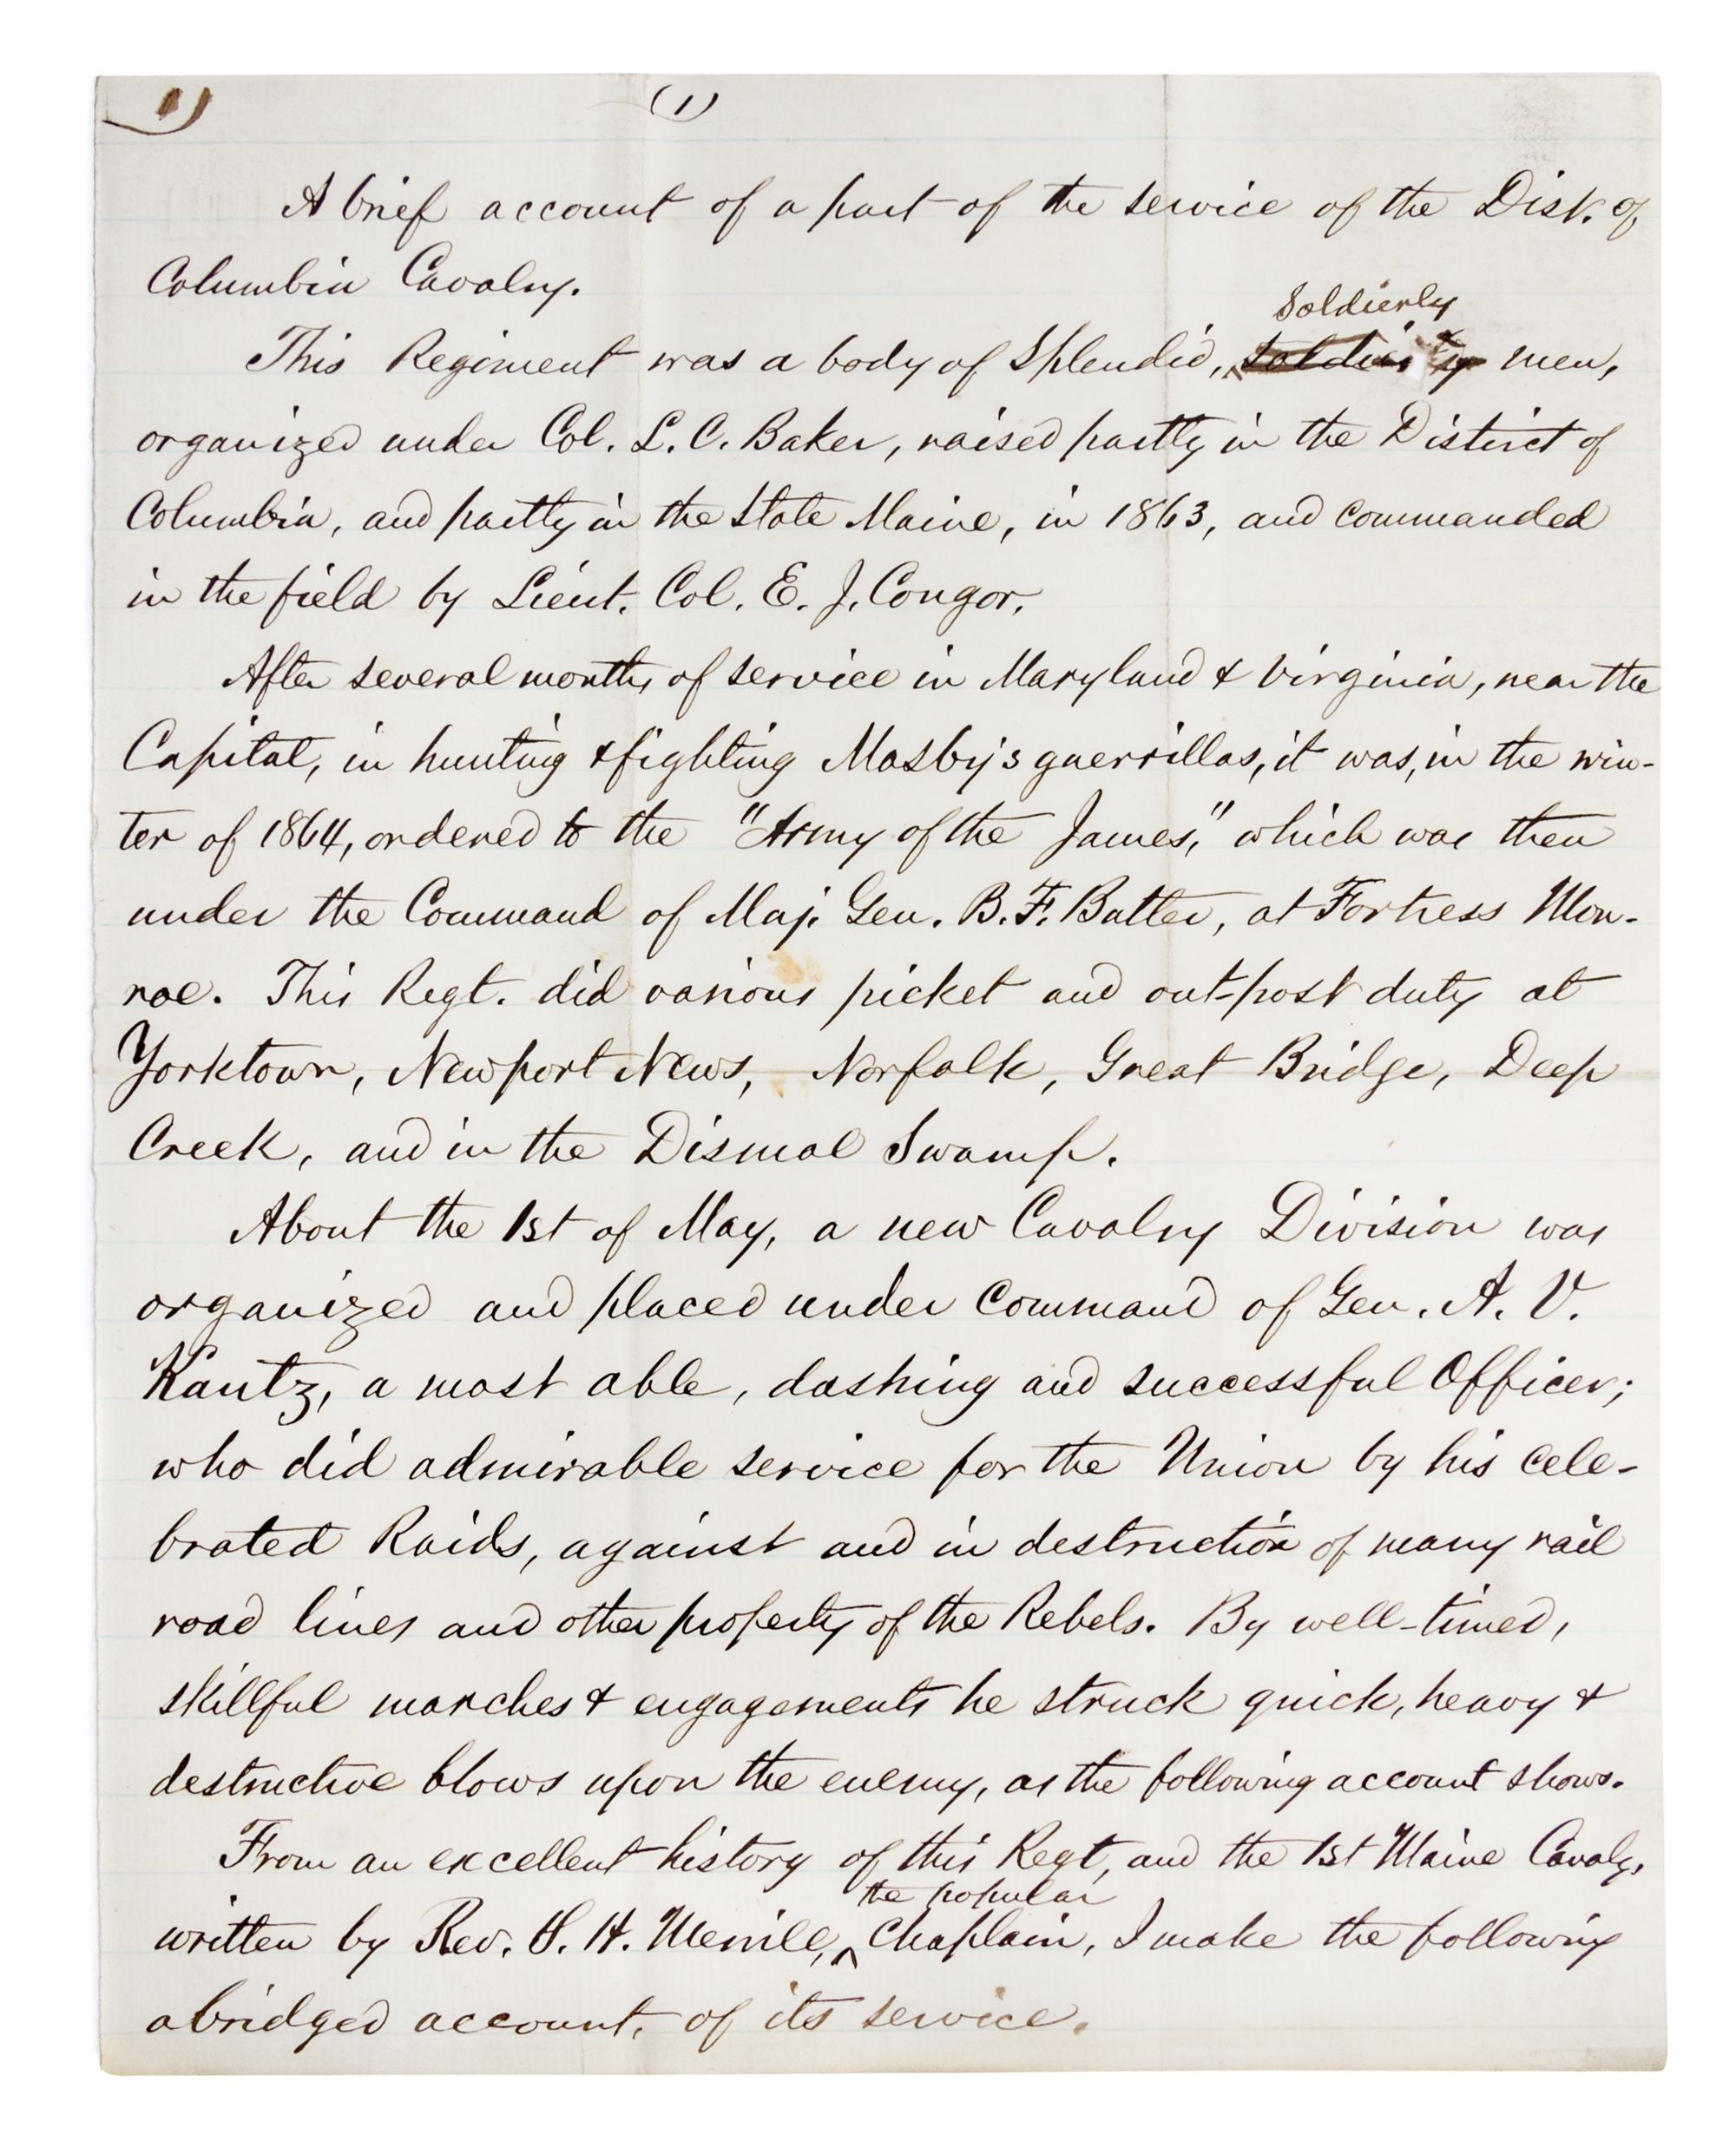 1)
(1)
A brief account of a part of the service of the Dist. of
Columbia Cavalry.
Soldierly
This Regiment was a body of splendid, men,
organized under Col. L. C. Baker, raised partly in the District of
Columbia, and partly in the State Maine, in 1863, and commanded
in the field by Lieut. Col. E. J. Congor.
After several months of service in Maryland & Virginia, near the
Capital, in hunting & fighting Mosby's guerrillas, it was, in the win-
ter of 1864, ordered to the "Army of the James," which was then
under the Command of Maj. Gen. B. F. Butler, at Fortress Mon-
roe. This Regt. did various picket and out-post duty at
Yorktown, Newport News, Norfolk, Great Bridge, Deep
Creek, and in the Dismal Swamp.
About the 1st of May, a new Cavalry Division was
organized and placed under Command of Gen. A. V.
Kautz, a most able, dashing and successful Officer;
who did admirable service for the Union by his cele-
brated Raids, against and in destruction of many rail
road lines and other property of the Rebels. By well-timed,
skillful marches & engagements he struck quick, heavy &
destructive blows upon the enemy, as the following account shows.
From an excellent history of this Regt, and the 1st Maine Cavaly,
the popular
written by Rev. S. H. Merrill, ^ Chaplain, I make the following
abridged account, of its service.